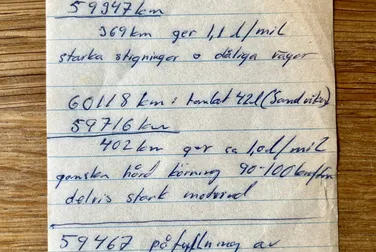 59347km
369km ger 1,1 l/mil
starka stigningar o dåliga vägar
60118 km: tankat 42l (Sandviken)
59716 km
402 km ger ca 1,0 l/mil
ganska hård körning 90-100km/tim
delvis stark motvind
59467 påfyllning av